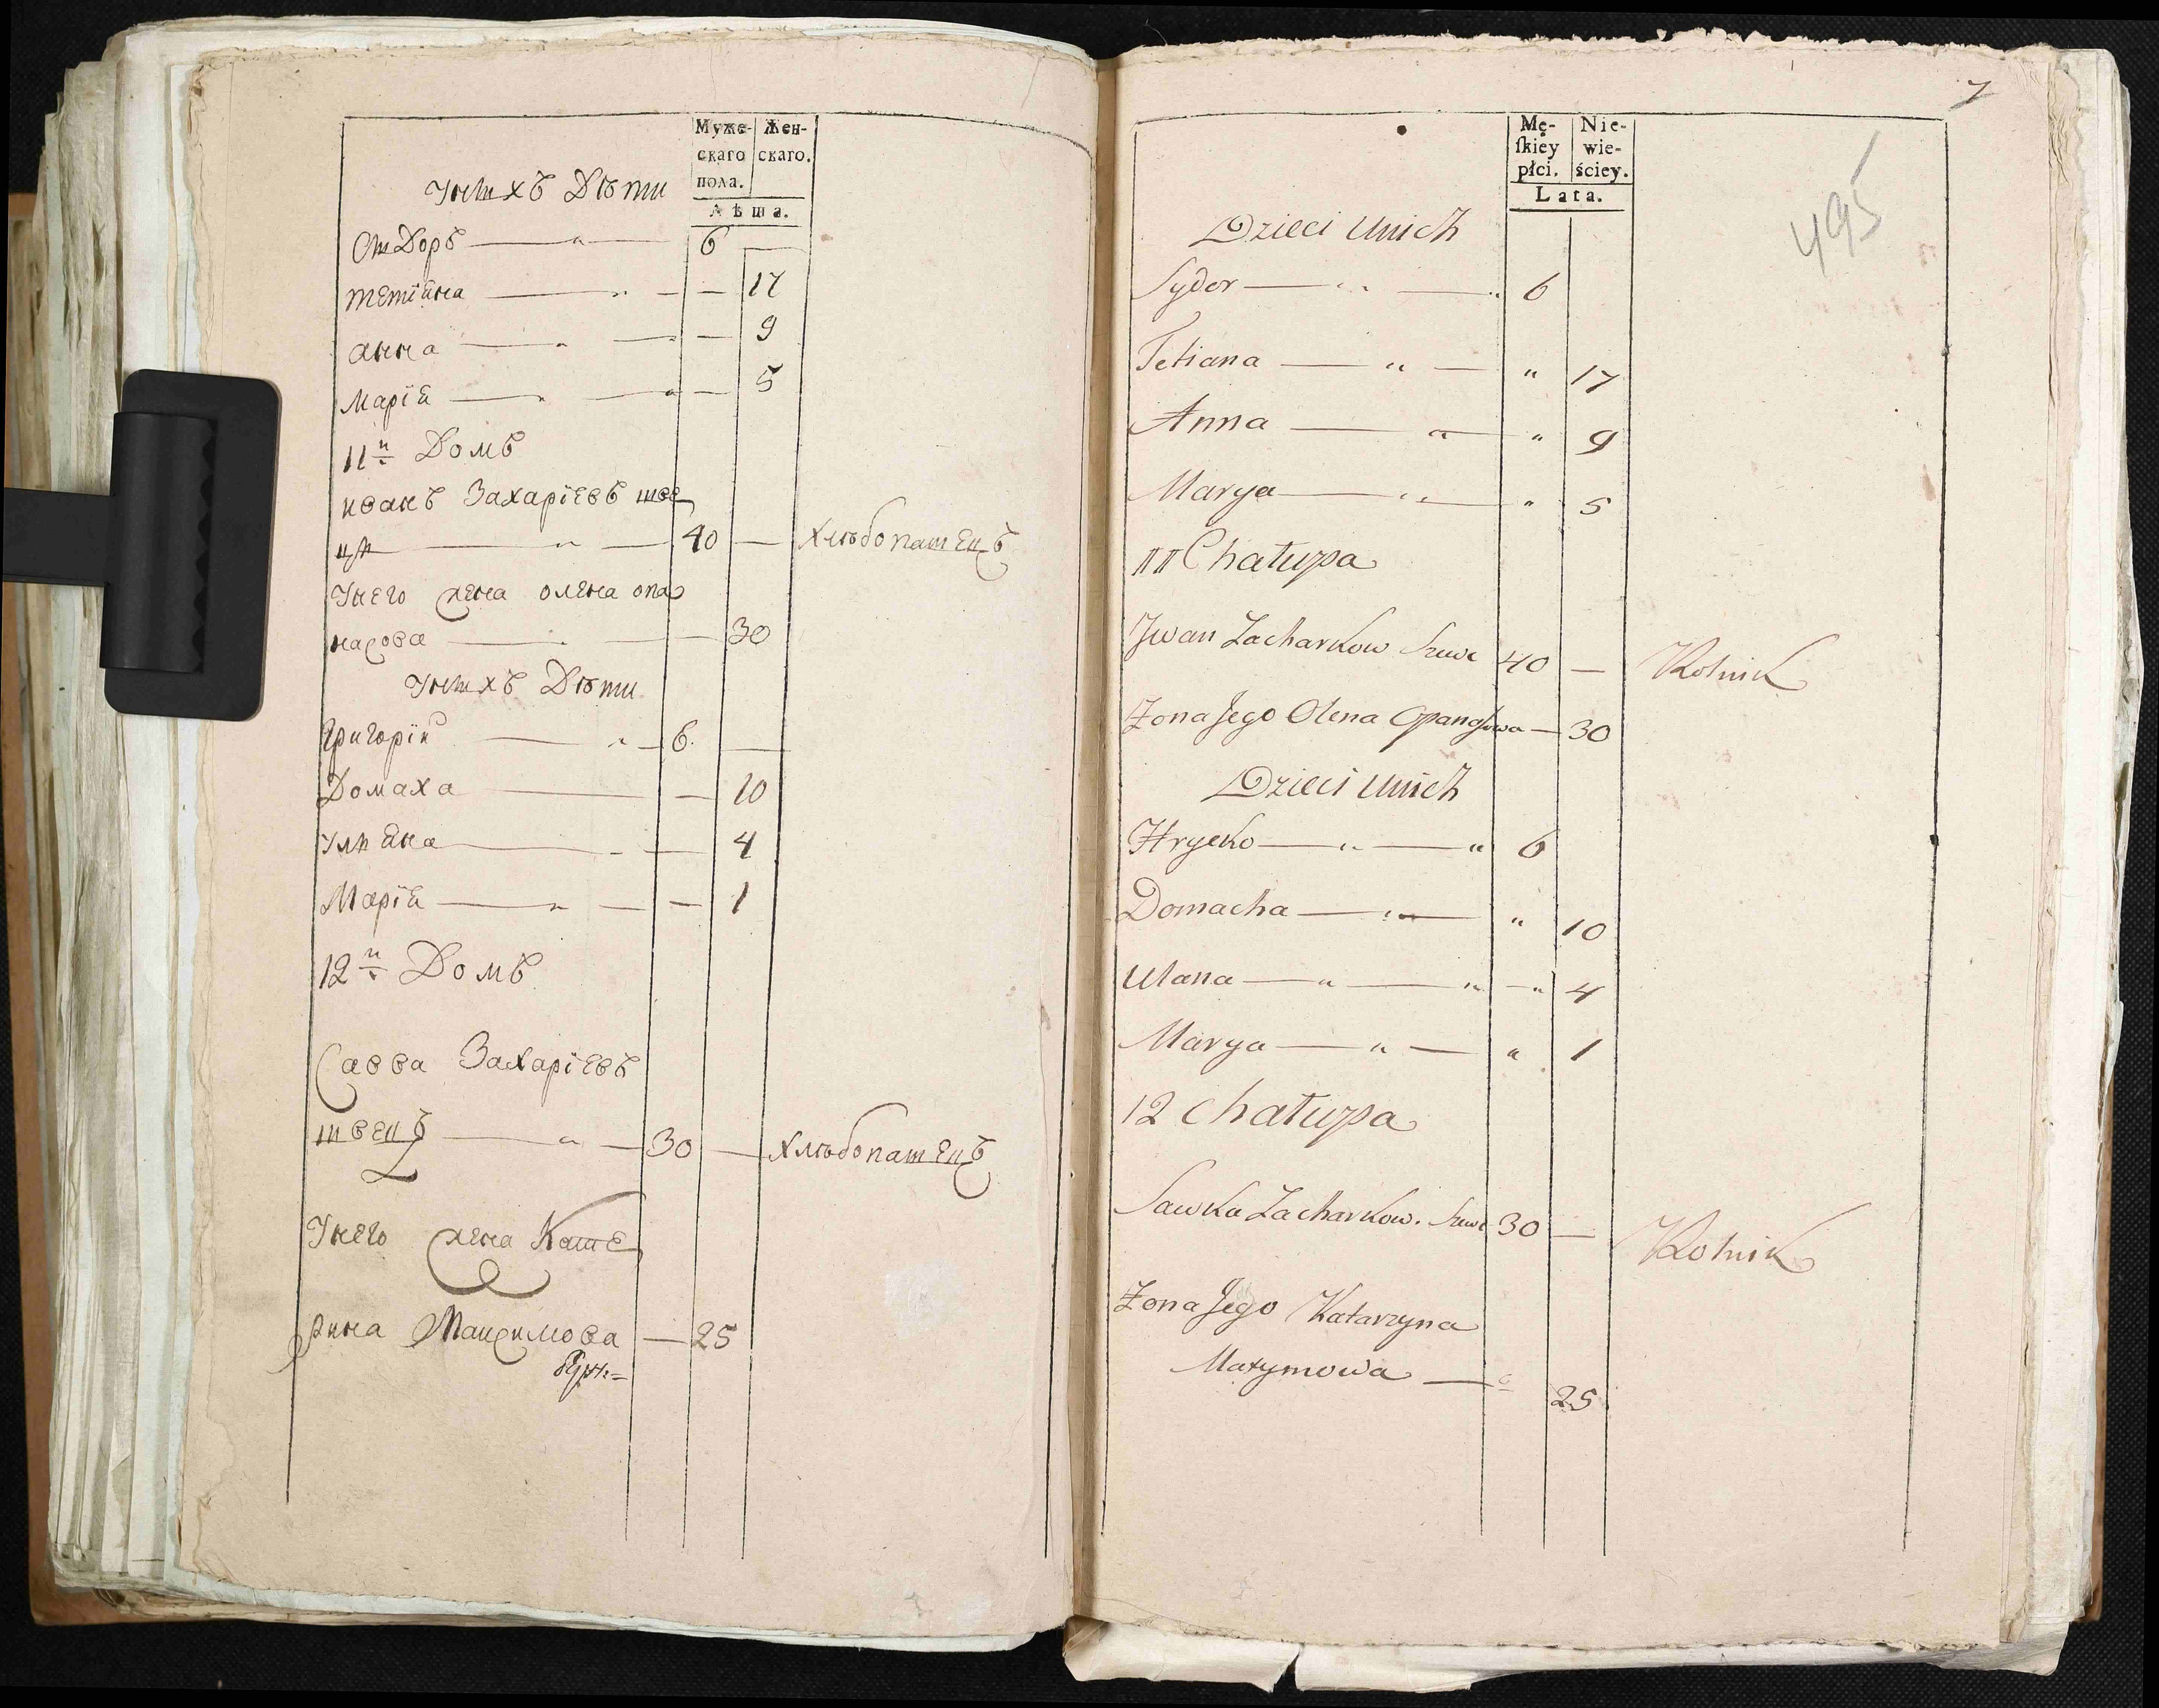 Муже-
скаго
пола.
Жен-
скаго.
Лѣта.
Унихъ Дѣти
Сидоръ — „ — 6
тетіана — „ — — 17
анна — „ — „ — 9
Марія — „ — „ — 5
11й Домъ
иванъ Захаріевъ шве
цъ — „ — 40 — хлѣбопашецъ
Унего жена олена опа
насова — „ — — 30
Унихъ Дѣти
Григорій — „ — 6. —
Домаха — — 10
Ульяна — „ — 4
Марія — „ — — 1
12й Домъ
Савва Захаріевъ
швецъ — „ — 30 — хлѣбопашецъ
Унего жена Кате
рина Максимова — 25
7
495
Mę-
ſkiey
płci.
Nie-
wie-
ściey.
Lata.
Dzieci Unich
Sydor — „ — „ 6
Tetiana — „ — „ 17
Anna — „ — „ 9
Marya — „ — „ 5
11 Chałupa
Jwan Zacharkow Szwe 40 — Rolnik
Zona Jego Olena Opanasowa — 30
Dzieci Unich
Hrycko — „ — „ 6
Domacha — „ — „ 10
Ulana — „ — „ — „ 4
Marya — „ — „ 1
12 Chałupa
Sawka Zacharkow. Szwe 30 — Rolnik
Zona Jego Katarzyna
Maxymowa — „ 25